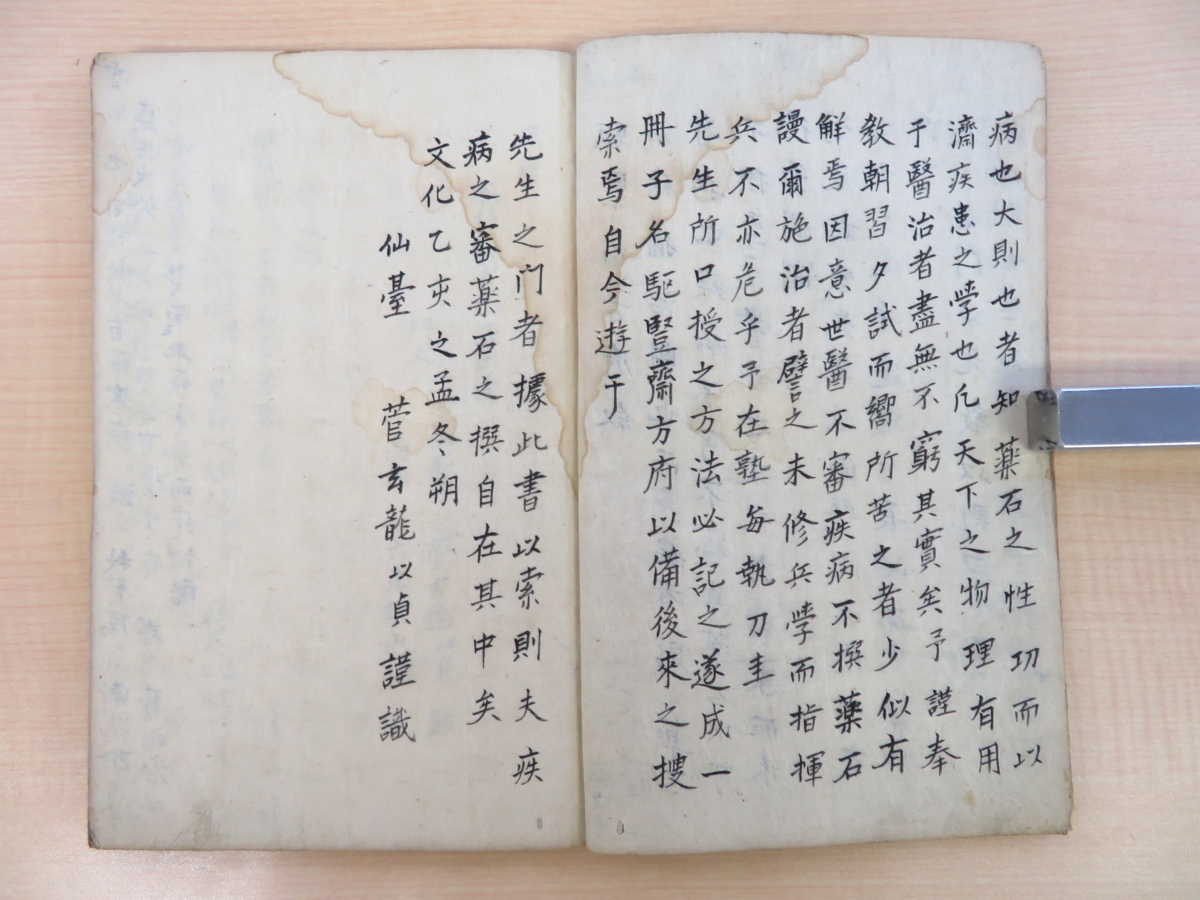 病也大則也者知薬石之性功而以
濟疾患之學也凢天下之物理有用
于醫治者盡無不窮其實矣予謹奉
教朝習夕試而嚮所苦之者少似有
解焉因意世醫不審疾病不撰薬石
謾爾施治者譬之未修兵學而指揮
兵不亦危乎予在塾每執刀圭
先生所口授之方法必記之遂成一
冊子名駆豎齋方府以備後來之搜
索焉自今遊于
先生之門者據此書以索則夫疾
病之審薬石之撰自在其中矣
文化乙亥之孟冬朔
仙臺 菅玄龍以貞謹識